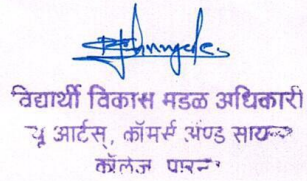 विद्यार्थी विकास मडळ अधिकारी
न्यू आर्टस्, कॉमर्स ॲण्ड सायन्स
कॉलेज पारनेर